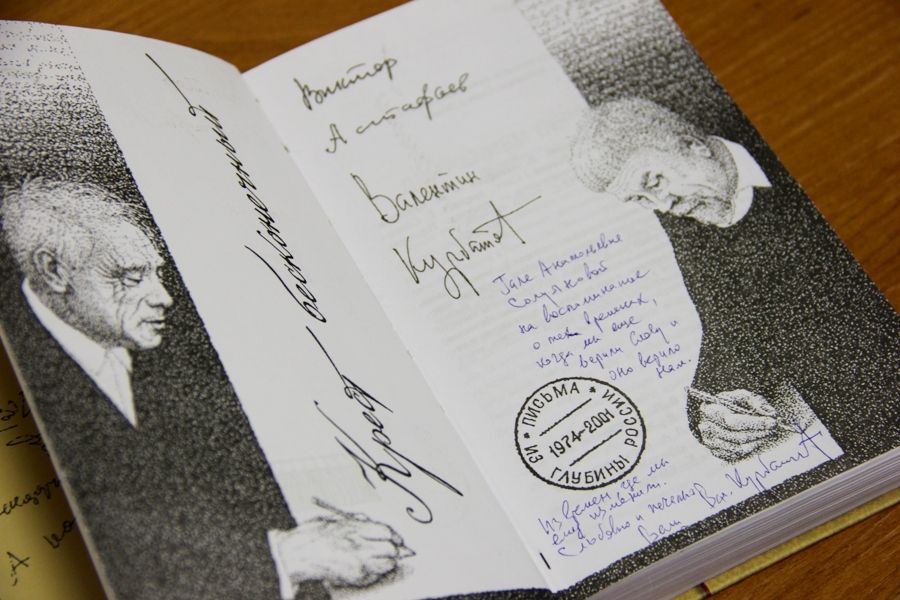 Крест бесконечный
Виктор
Астафьев
Валентин
Курбатов
Гале Анатольевне
на воспоминание
о тех временах,
когда мы еще
верили Слову и
оно верило
нам.
ПИСЬМА ИЗ ГЛУБИНЫ РОССИИ
1974-2001
Из времен, где мы
ему изменили.
С любовью и печалью
Ваш Вл. Курбатов